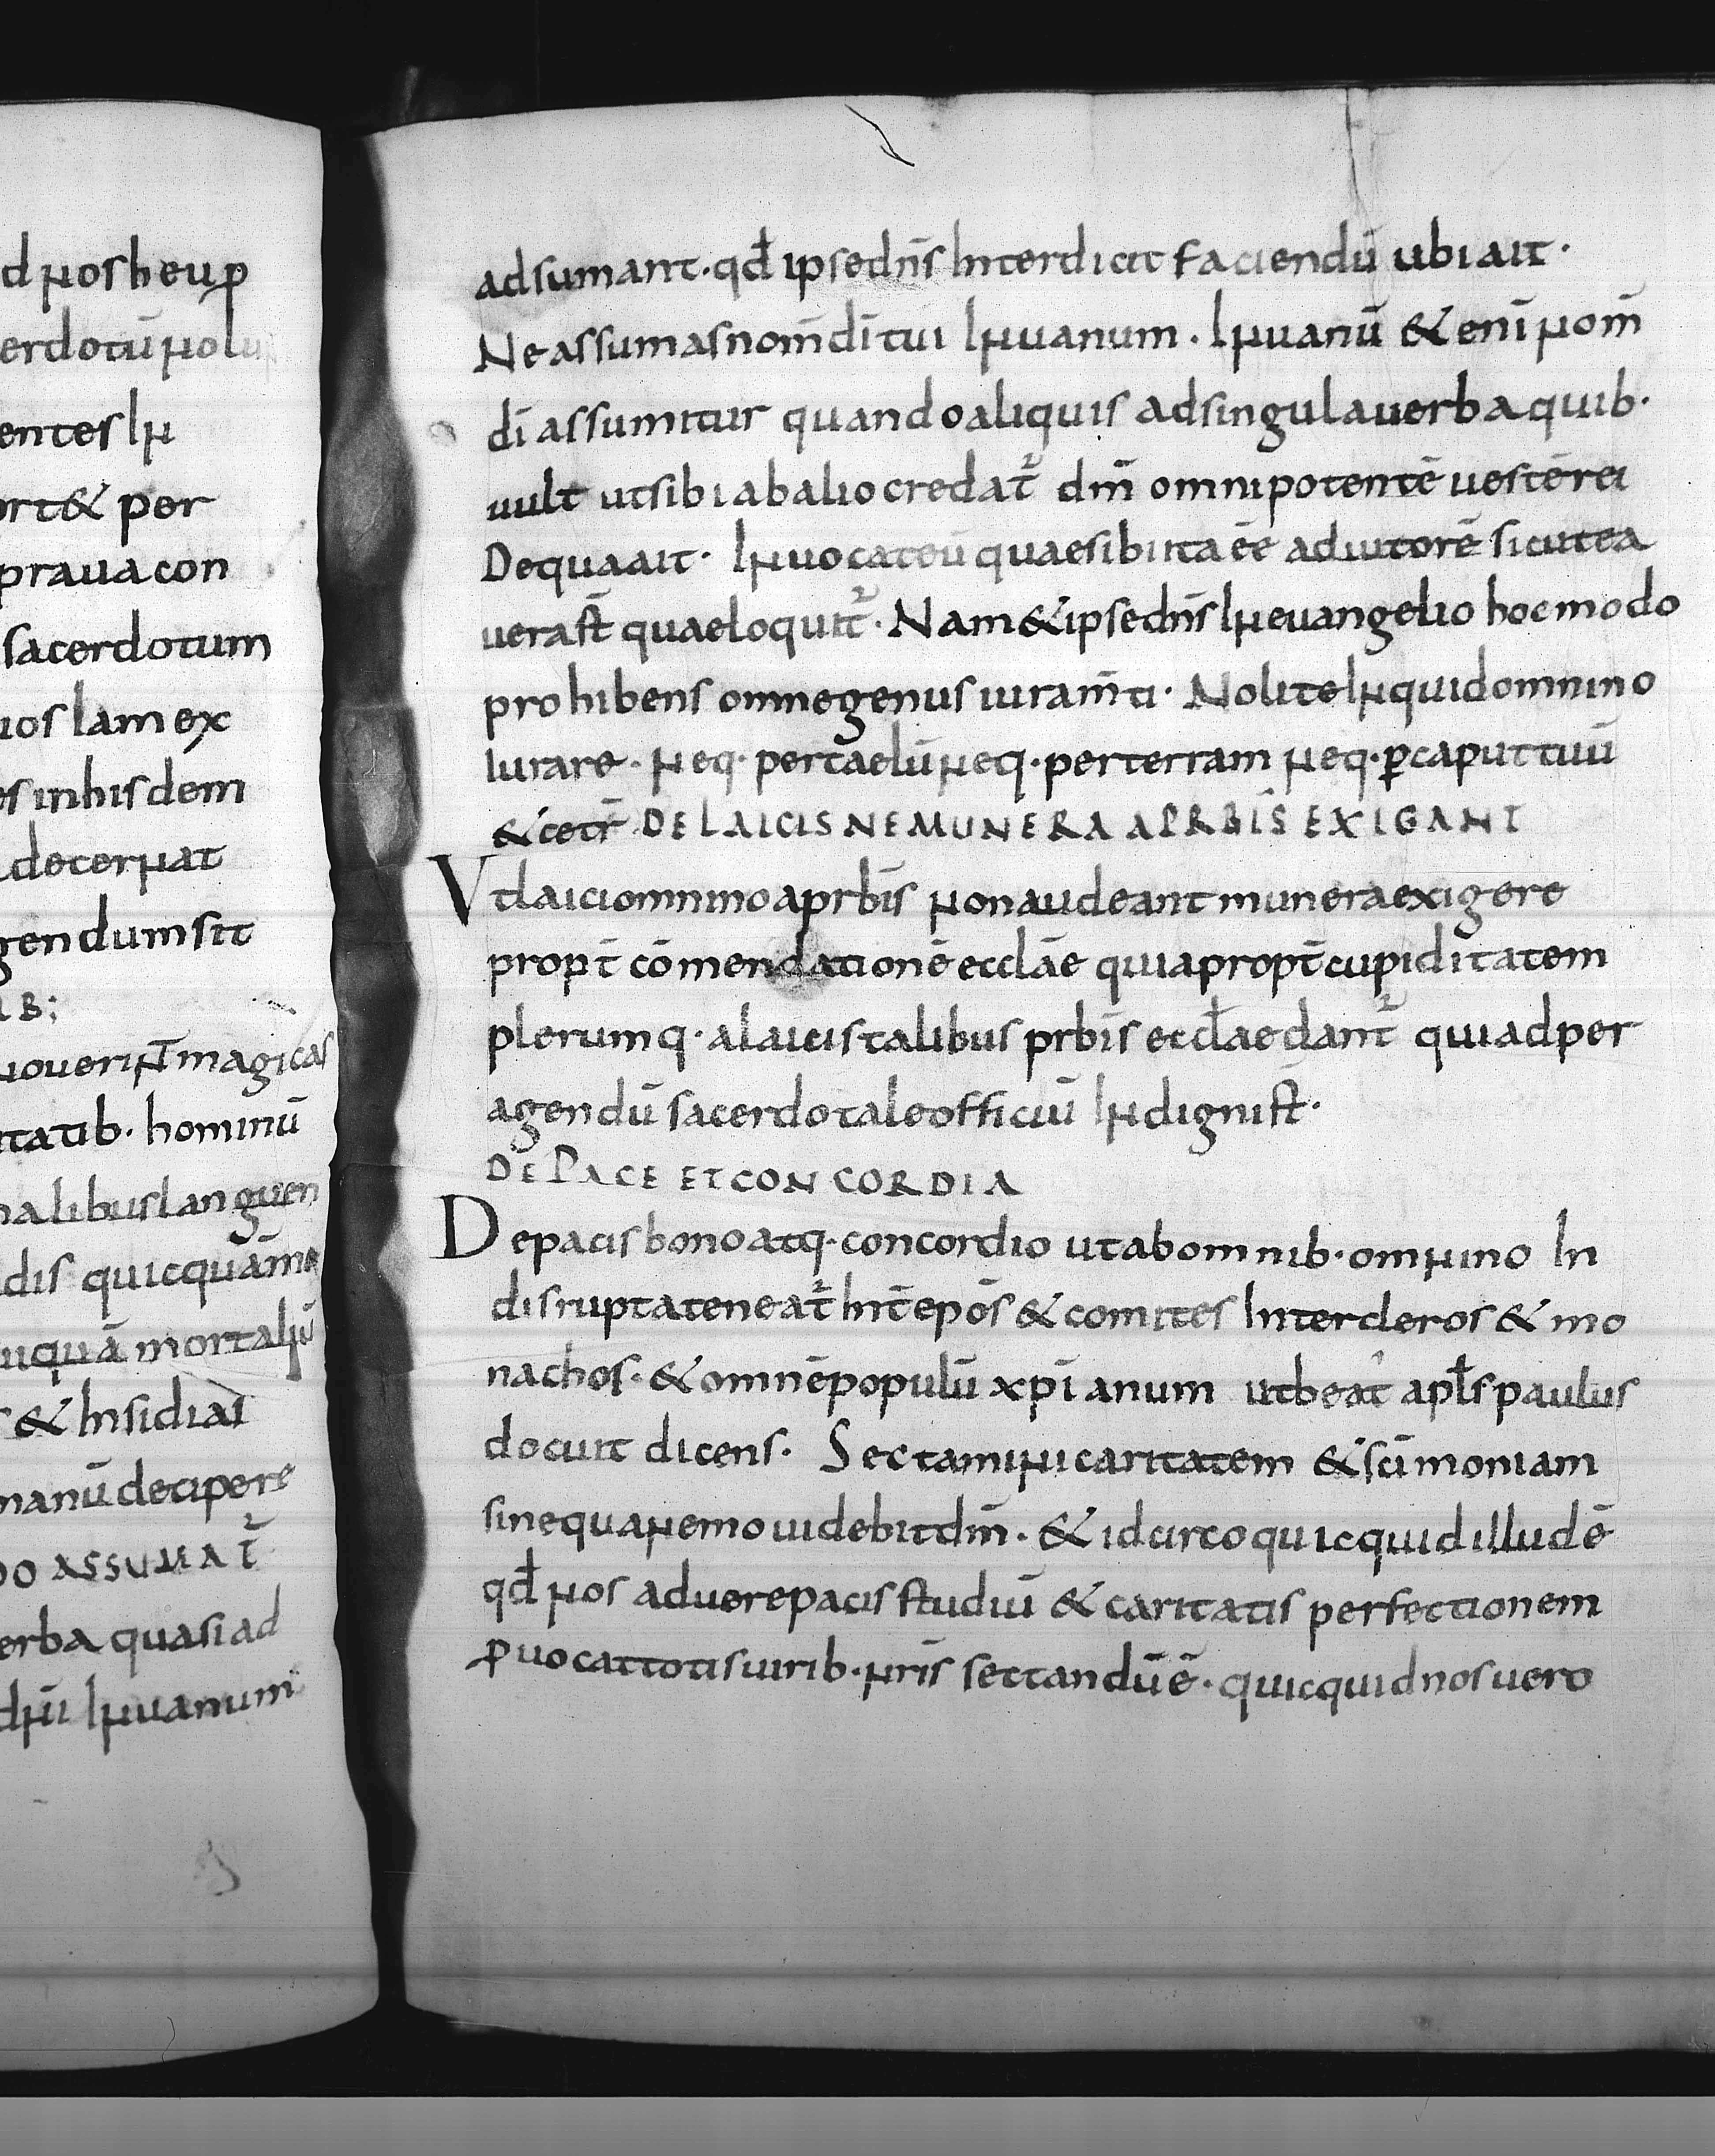 d nos heu p̄
erdotū nolu
entes In
ort& per
praua con
sacerdotum
uos Iam ex
es inhis dem
decernat
gendum sit
AB;
nouerinT magicas
itatib· hominū
malibus languen
dis quicquā me
uquā mortaliū
& Insidias
manū decipere
DO ASSUMAT̄
erba quasi ad
dn̄i In uanum
adsumant· qđ ipse dn̄s Interdicit faciendū ubi ait·
Ne assumas nom̄ dī tui In uanum· In uanū & enī nom̄
dī assumitur quando aliquis ad singula uerba quib·
uult ut sibi ab alio credat̄ dm̄ omnipotentē testē rei
De qua ait· Inuocat eū quae sibi ita eē adiutorē sicut ea
uera st̄ quae loquit̄· Nam & ipse dn̄s In euangelio hoc modo
prohibens omne genus iuram̄ti· Nolite Inquid omnino
Iurare· neq· per caelū neq· per terram neq· ꝑ caput tuū
& cetr̄ DE LAICIS NE MUNERA A PRBIS EXIGANT
Vt laici omnino a prbīs non audeant munera exigere
propt̄ cōmendationē ecclāe quia propt̄ cupiditatem
plerumq· a laicis talibus prbīs eccłae dant̄ qui ad per
agendū sacerdotale officiū Indigni st̄·
DE PACE ET CONCORDIA
De pacis bono atq· concordio ut ab omnib· omnino In
disrupta teneat̄ Int̄ epōs & comites Inter cleros & mo
nachos· & omnē populū xpīanum ut beat̂ apłs paulus
docuit dicens· Sectamini caritatem & scīmoniam
sine qua nemo uidebit dm̄· & idcirco quicquid illud ē
qđ nos ad uere pacis studiū & caritatis perfectionem
ꝓuocat totis uirib· nr̄is sectandū ē· quicquid nos uero